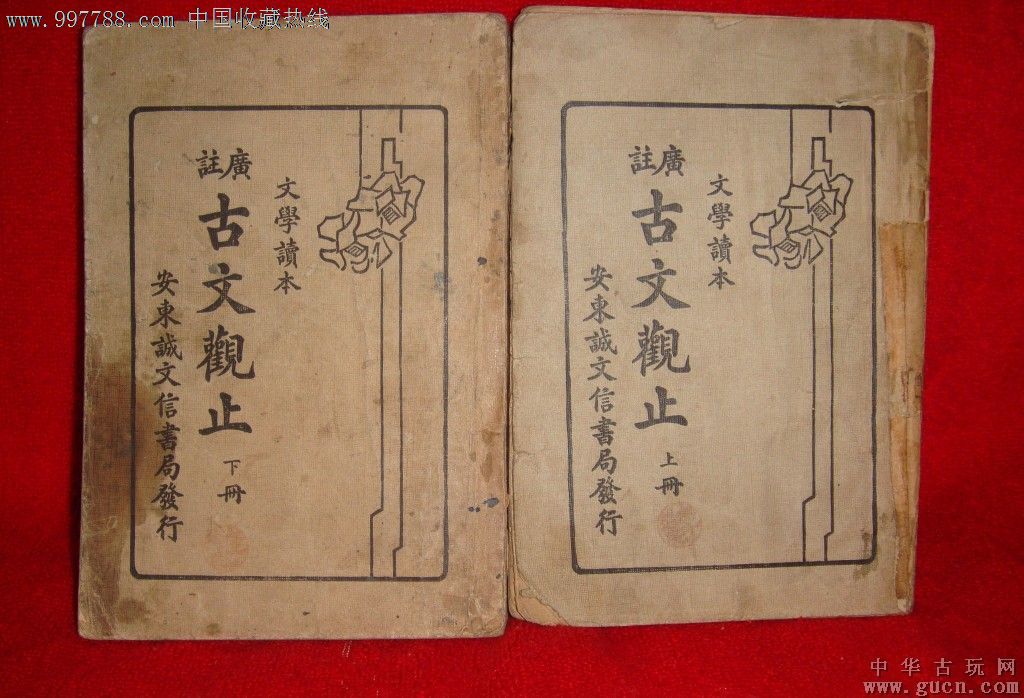 www.997788.com 中国收藏热线
文學讀本
廣註
古文觀止
下冊
安東誠文信書局發行
文學讀本
廣註
古文觀止
上冊
安東誠文信書局發行
中华古玩网
www.gucn.com